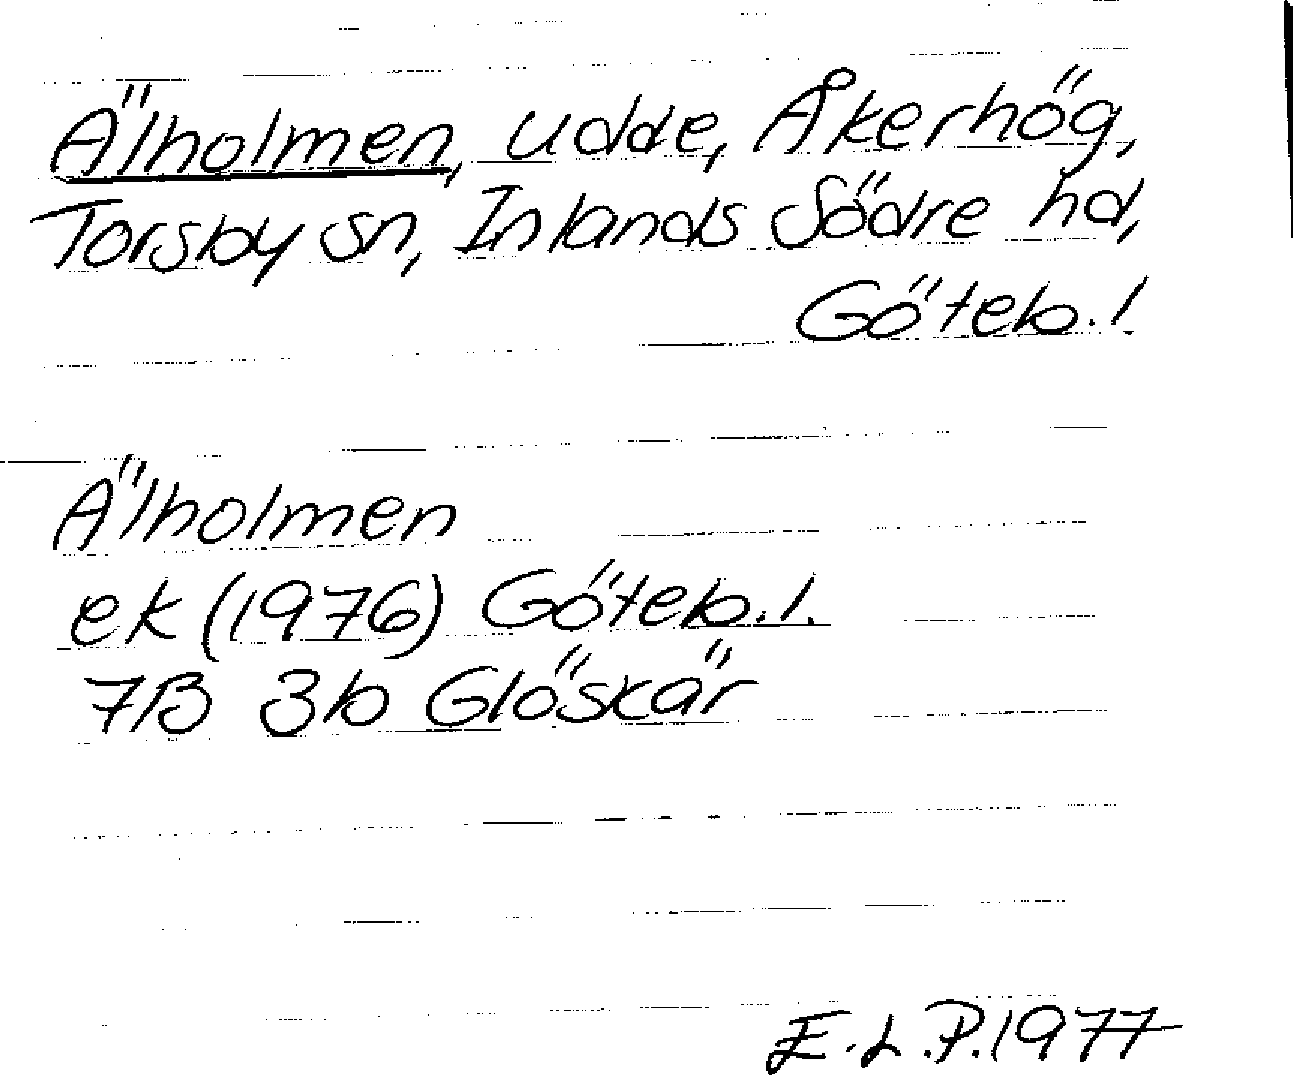 Älholmen, udde, Åkerhög,
Torsby sn, Inlands Södre hd,
Göteb.l.
Älholmen
ek (1976) Göteb.l.
7B 3b Glöskär
E.L.P.1977